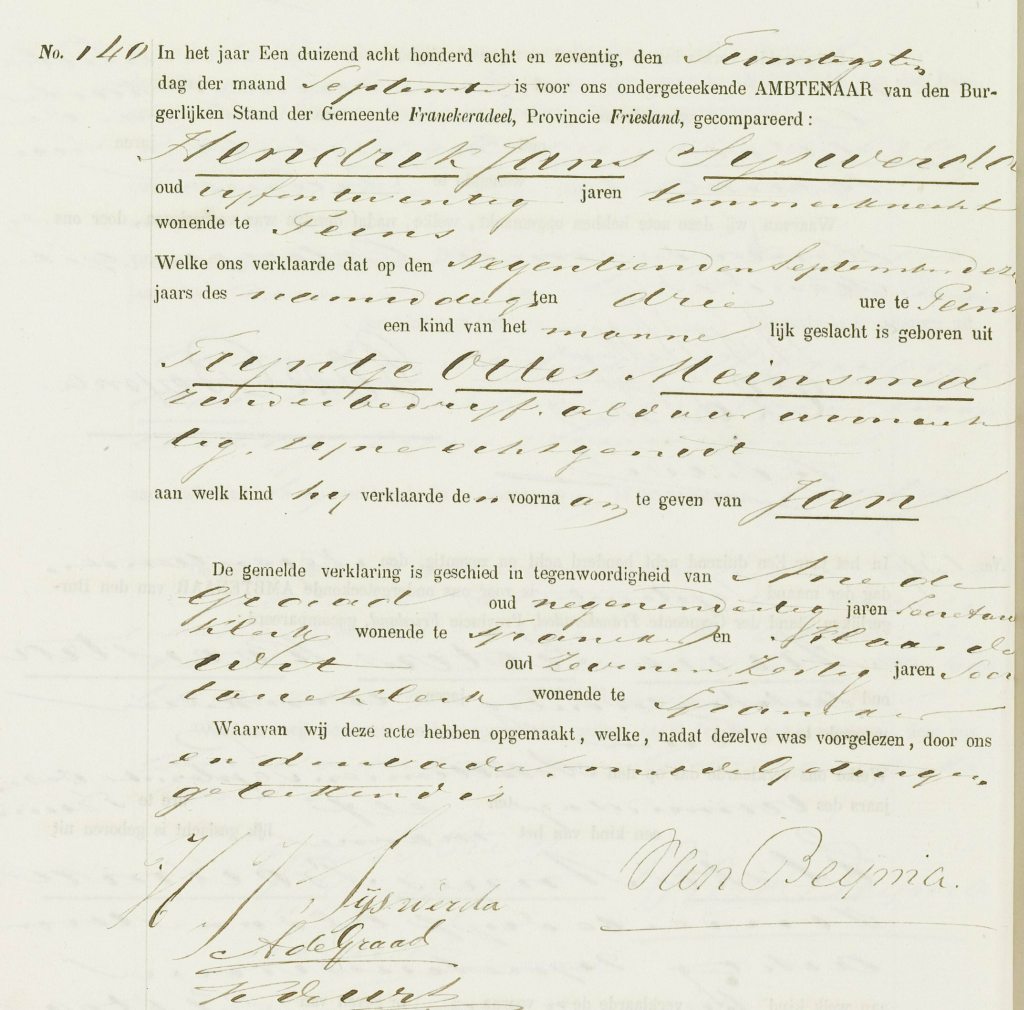 No. 140 In het jaar Een duizend acht honderd acht en zeventig, den Twintigsten
dag der maand September is voor ons ondergeteekende AMBTENAAR van den Bur-
gerlijken Stand der Gemeente Franekeradeel, Provincie Friesland, gecompareerd:
Hendrik Jans Sijswerda
oud vyfentwintig jaren timmerknecht
wonende te Peins
Welke ons verklaarde dat op den Negentienden September dezes
jaars des namiddags ten drie ure te Peins
een kind van het manne lijk geslacht is geboren uit
Tryntje Ottes Meinsma
zonder bedryf, aldaar woonach
tig, zyne echtgenoot
aan welk kind hy verklaarde den voornaam te geven van Jan
De gemelde verklaring is geschied in tegenwoordigheid van Ane de
Graad oud negenendertig jaren Secretarie
klerk wonende te Franeker en Klaas de
Wit oud Zevenen Zestig jaren Secre
tarieklerk wonende te Franeker
Waarvan wij deze acte hebben opgemaakt, welke, nadat dezelve was voorgelezen, door ons
en den vader, met de Getuigen,
geteekend is
H J Sijswerda
Van Beyma.
A de Graad
K de Wit